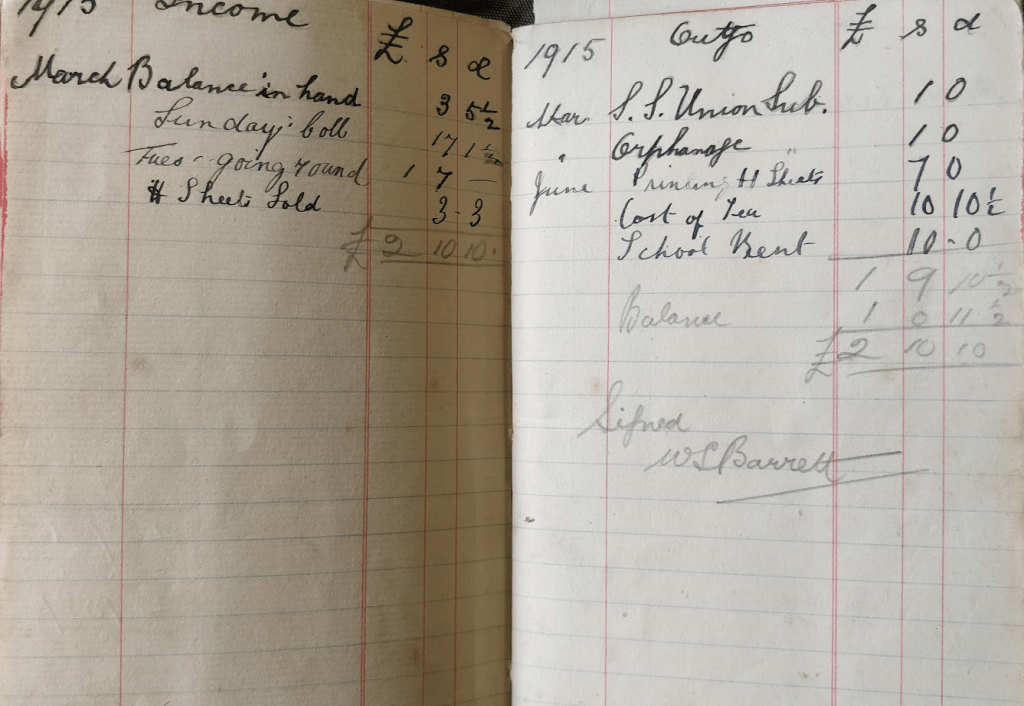 1915 Income
£ s d
March Balance in hand 3 5½
Sunday: Coll 17 1½
Tues - going round 1 7 —
H Sheets Sold 3 - 3
£ 2 10 10.
1915 Outgo £ s d
Mar. S. S. Union Sub. 1 0
" Orphanage " 1 0
June Printing H Sheets 7 0
Cost of Tea 10 10½
School Rent 10 - 0
1 9 10½
Balance 1 0 11½
£2 10 10
Signed
W S Barrett